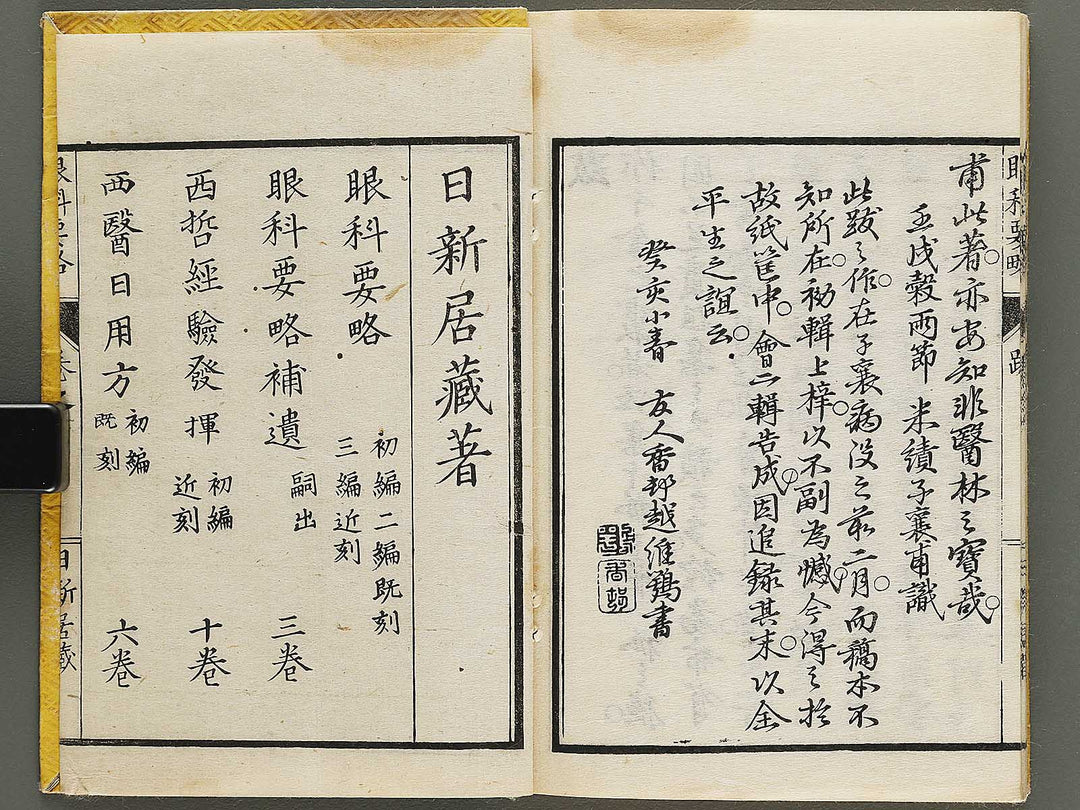 甫此著亦安知非醫林之寶哉
壬戌穀雨節 米績子襄甫識
此跋之作在子襄病没之前二月而稿本不
知所在初輯上梓以不副為憾今得之於
故紙筐中會二輯告成因追録其末以全
平生之誼云
癸亥小春 友人香邨越維鶴書
眼科要略
跋
日新居藏著
眼科要略 初編二編既刻 三編近刻
眼科要略補遺 嗣出 三巻
西哲經驗發揮 初編 近刻 十巻
西醫日用方 初編 既刻 六巻
眼科要略
日新居藏